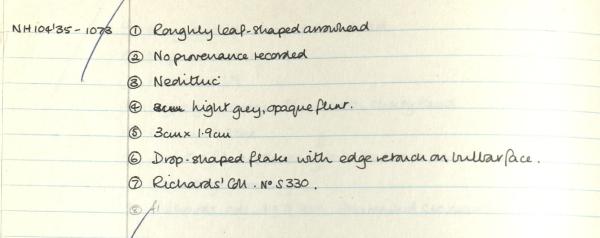 NH104'35 - 1073 ① Roughly leaf-shaped arrowhead
② No provenance recorded
③ Neolithic
④ light grey, opaque flint.
⑤ 3cm x 1.9cm
⑥ Drop-shaped flake with edge retouch on bulbar face.
⑦ Richards' Coll. No S330.
⑧